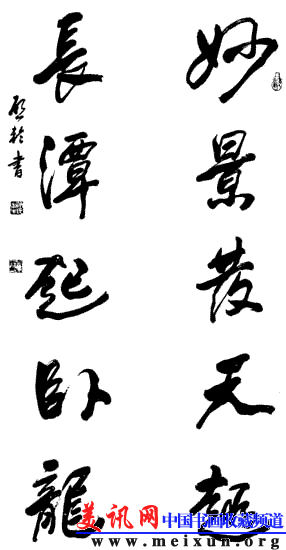 妙景發天趣
長潭起卧龍
書
美讯网 中国书画收藏频道
www.meixun.org